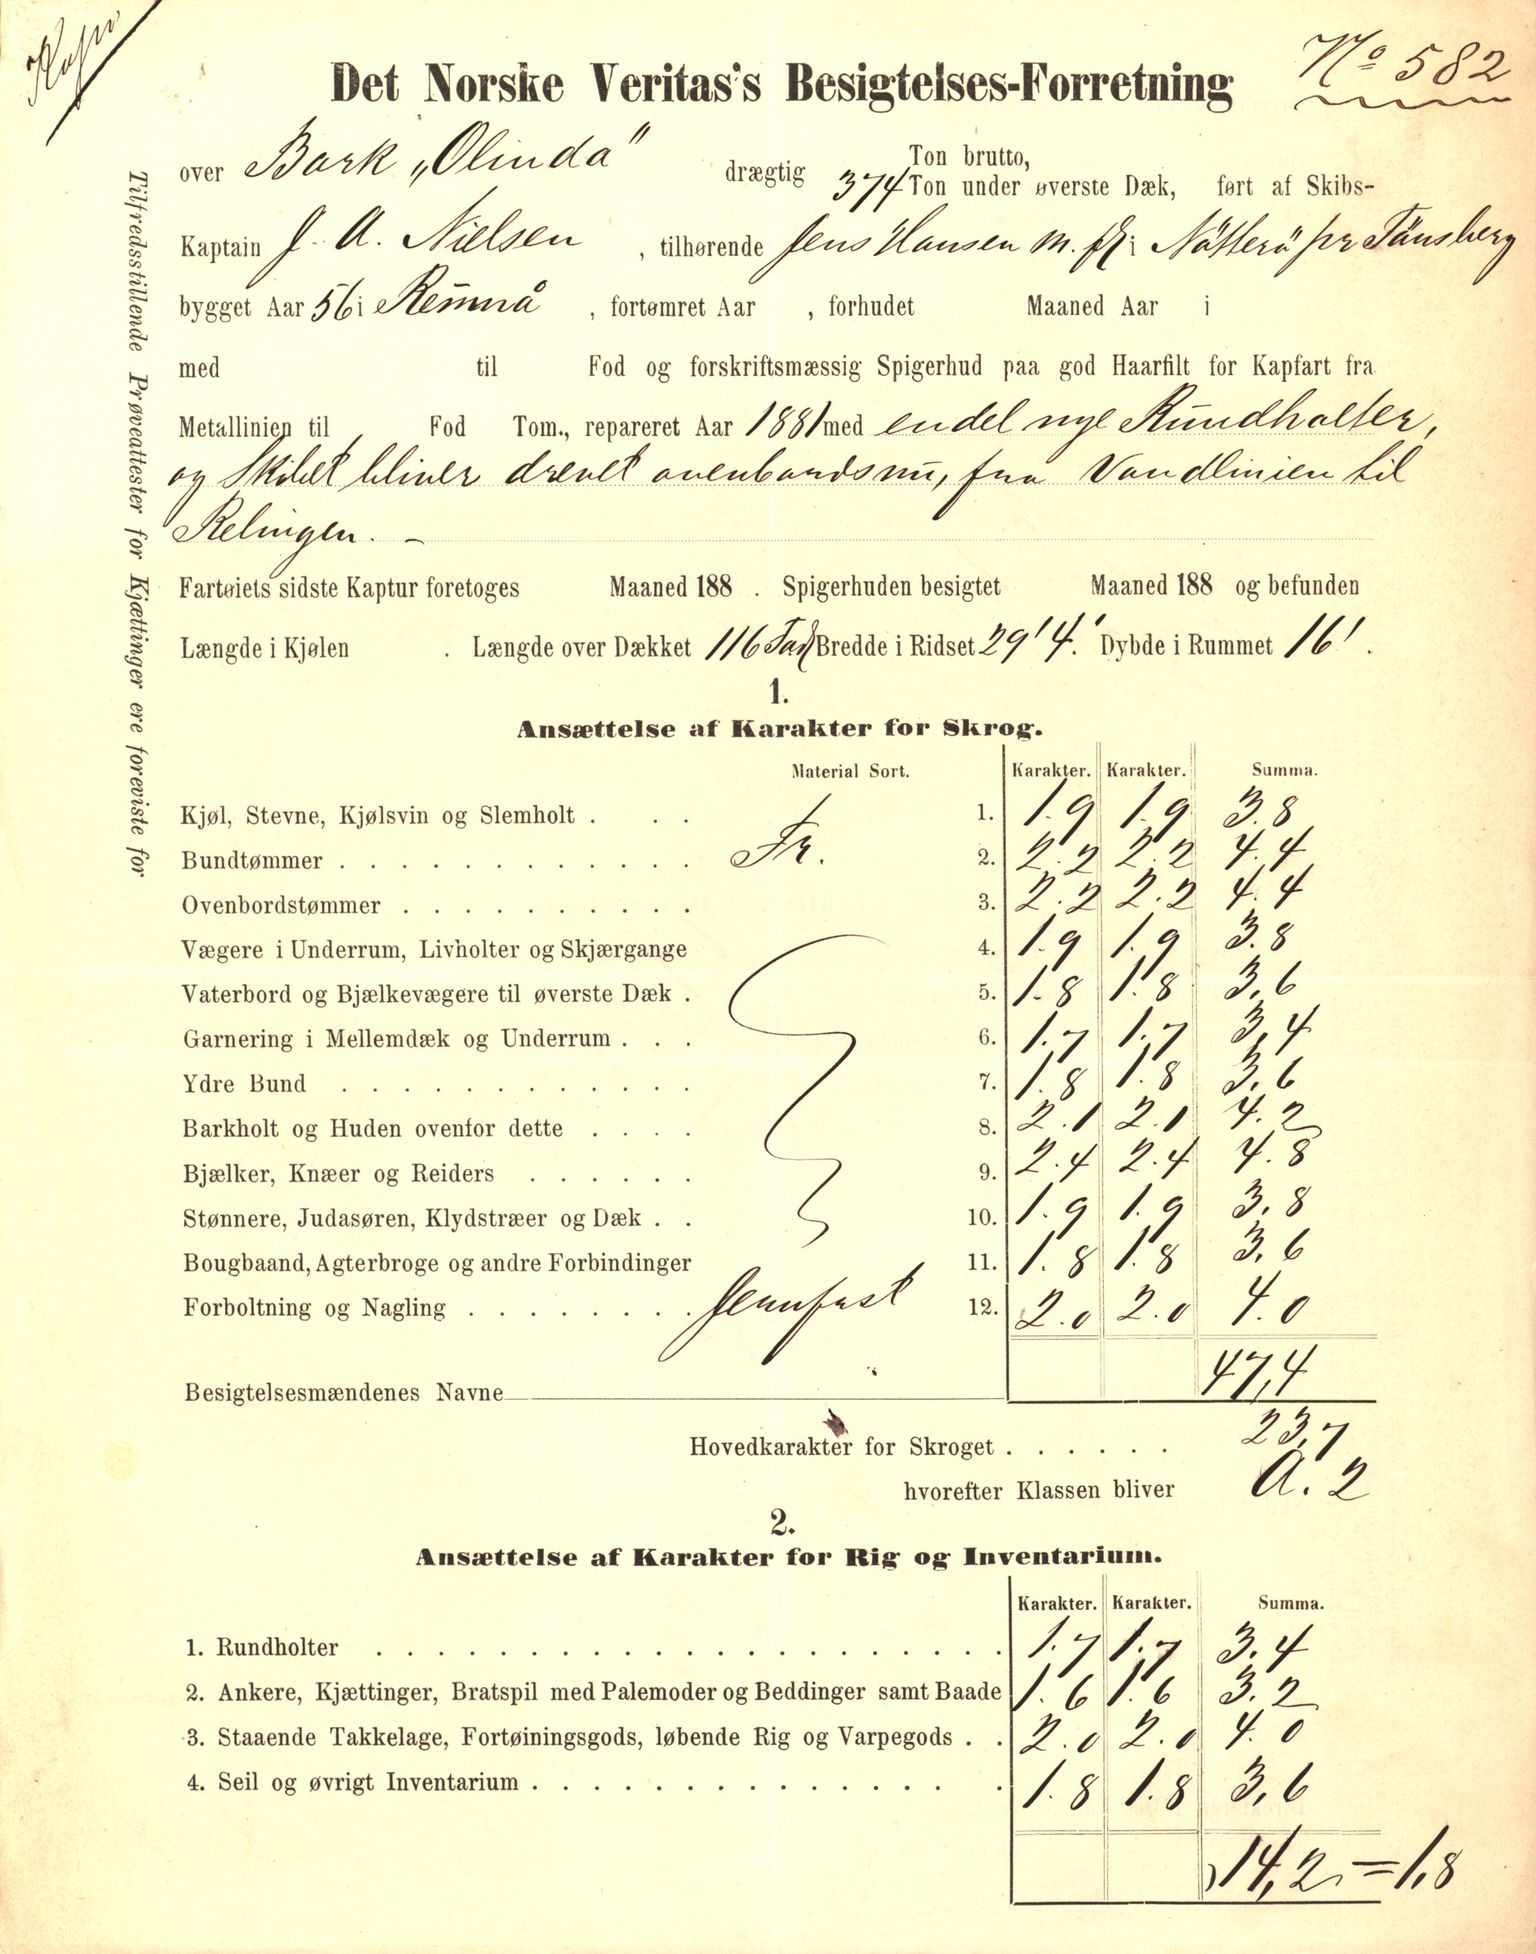 Kopi
No 582
Det Norske Veritas's Besigtelses-Forretning
over Bark „Olinda" drægtig 374 Ton brutto,
Ton under øverste Dæk, ført af Skibs-
Kaptain J. A. Nielsen, tilhørende Jens Hansen m. fl. i Nötterö pr Tönsberg
bygget Aar 56 i , fortømret Aar , forhudet Maaned Aar i
med til Fod og forskriftsmæssig Spigerhud paa god Haarfilt for Kapfart fra
Metallinien til Fod Tom., repareret Aar 1881 med endel nye Rundholter,
og Skibet bliver drevet ovenbords nu, fra Vandlinien til
Relingen. –
Fartøiets sidste Kaptur foretoges Maaned 188 . Spigerhuden besigtet Maaned 188 og befunden
Længde i Kjølen . Længde over Dækket 116 Fod Bredde i Ridset 29' 4". Dybde i Rummet 16' .
Tilfredsstillende Prøveattester for Kjættinger ere foreviste for
1.
Ansættelse af Karakter for Skrog.
Material Sort. Karakter. Karakter. Summa.
Kjøl, Stevne, Kjølsvin og Slemholt . . . 1. 1.9 1.9 3.8
Bundtømmer . . . . . . . . . . . . Fr. 2. 2.2 2.2 4.4
Ovenbordstømmer . . . . . . . . . . 3. 2.2 2.2 4.4
Vægere i Underrum, Livholter og Skjærgange 4. 1.9 1.9 3.8
Vaterbord og Bjælkevægere til øverste Dæk . 5. 1.8 1.8 3,6
Garnering i Mellemdæk og Underrum . . . 6. 1.7 1.7 3,4
Ydre Bund . . . . . . . . . . . . 7. 1.8 1.8 3,6
Barkholt og Huden ovenfor dette . . . . 8. 2.1 2.1 4.2
Bjælker, Knæer og Reiders . . . . . . 9. 2.4 2.4 4.8
Stønnere, Judasøren, Klydstræer og Dæk . . 10. 1.9 1.9 3,8
Bougbaand, Agterbroge og andre Forbindinger 11. 1.8 1.8 3,6
Forboltning og Nagling . . . . . . . . Jernfast 12. 2.0 2.0 4.0
47,4
Besigtelsesmændenes Navne
Hovedkarakter for Skroget . . . . . . 23,7
hvorefter Klassen bliver A. 2
2.
Ansættelse af Karakter for Rig og Inventarium.
Karakter. Karakter. Summa.
1. Rundholter . . . . . . . . . . . . . . . . . . . . 1.7 1.7 3.4
2. Ankere, Kjættinger, Bratspil med Palemoder og Beddinger samt Baade 1.6 1.6 3.2
3. Staaende Takkelage, Fortøiningsgods, løbende Rig og Varpegods . . 2.0 2.0 4.0
4. Seil og øvrigt Inventarium . . . . . . . . . . . . . . . 1.8 1.8 3,6
14,2 = 1,8